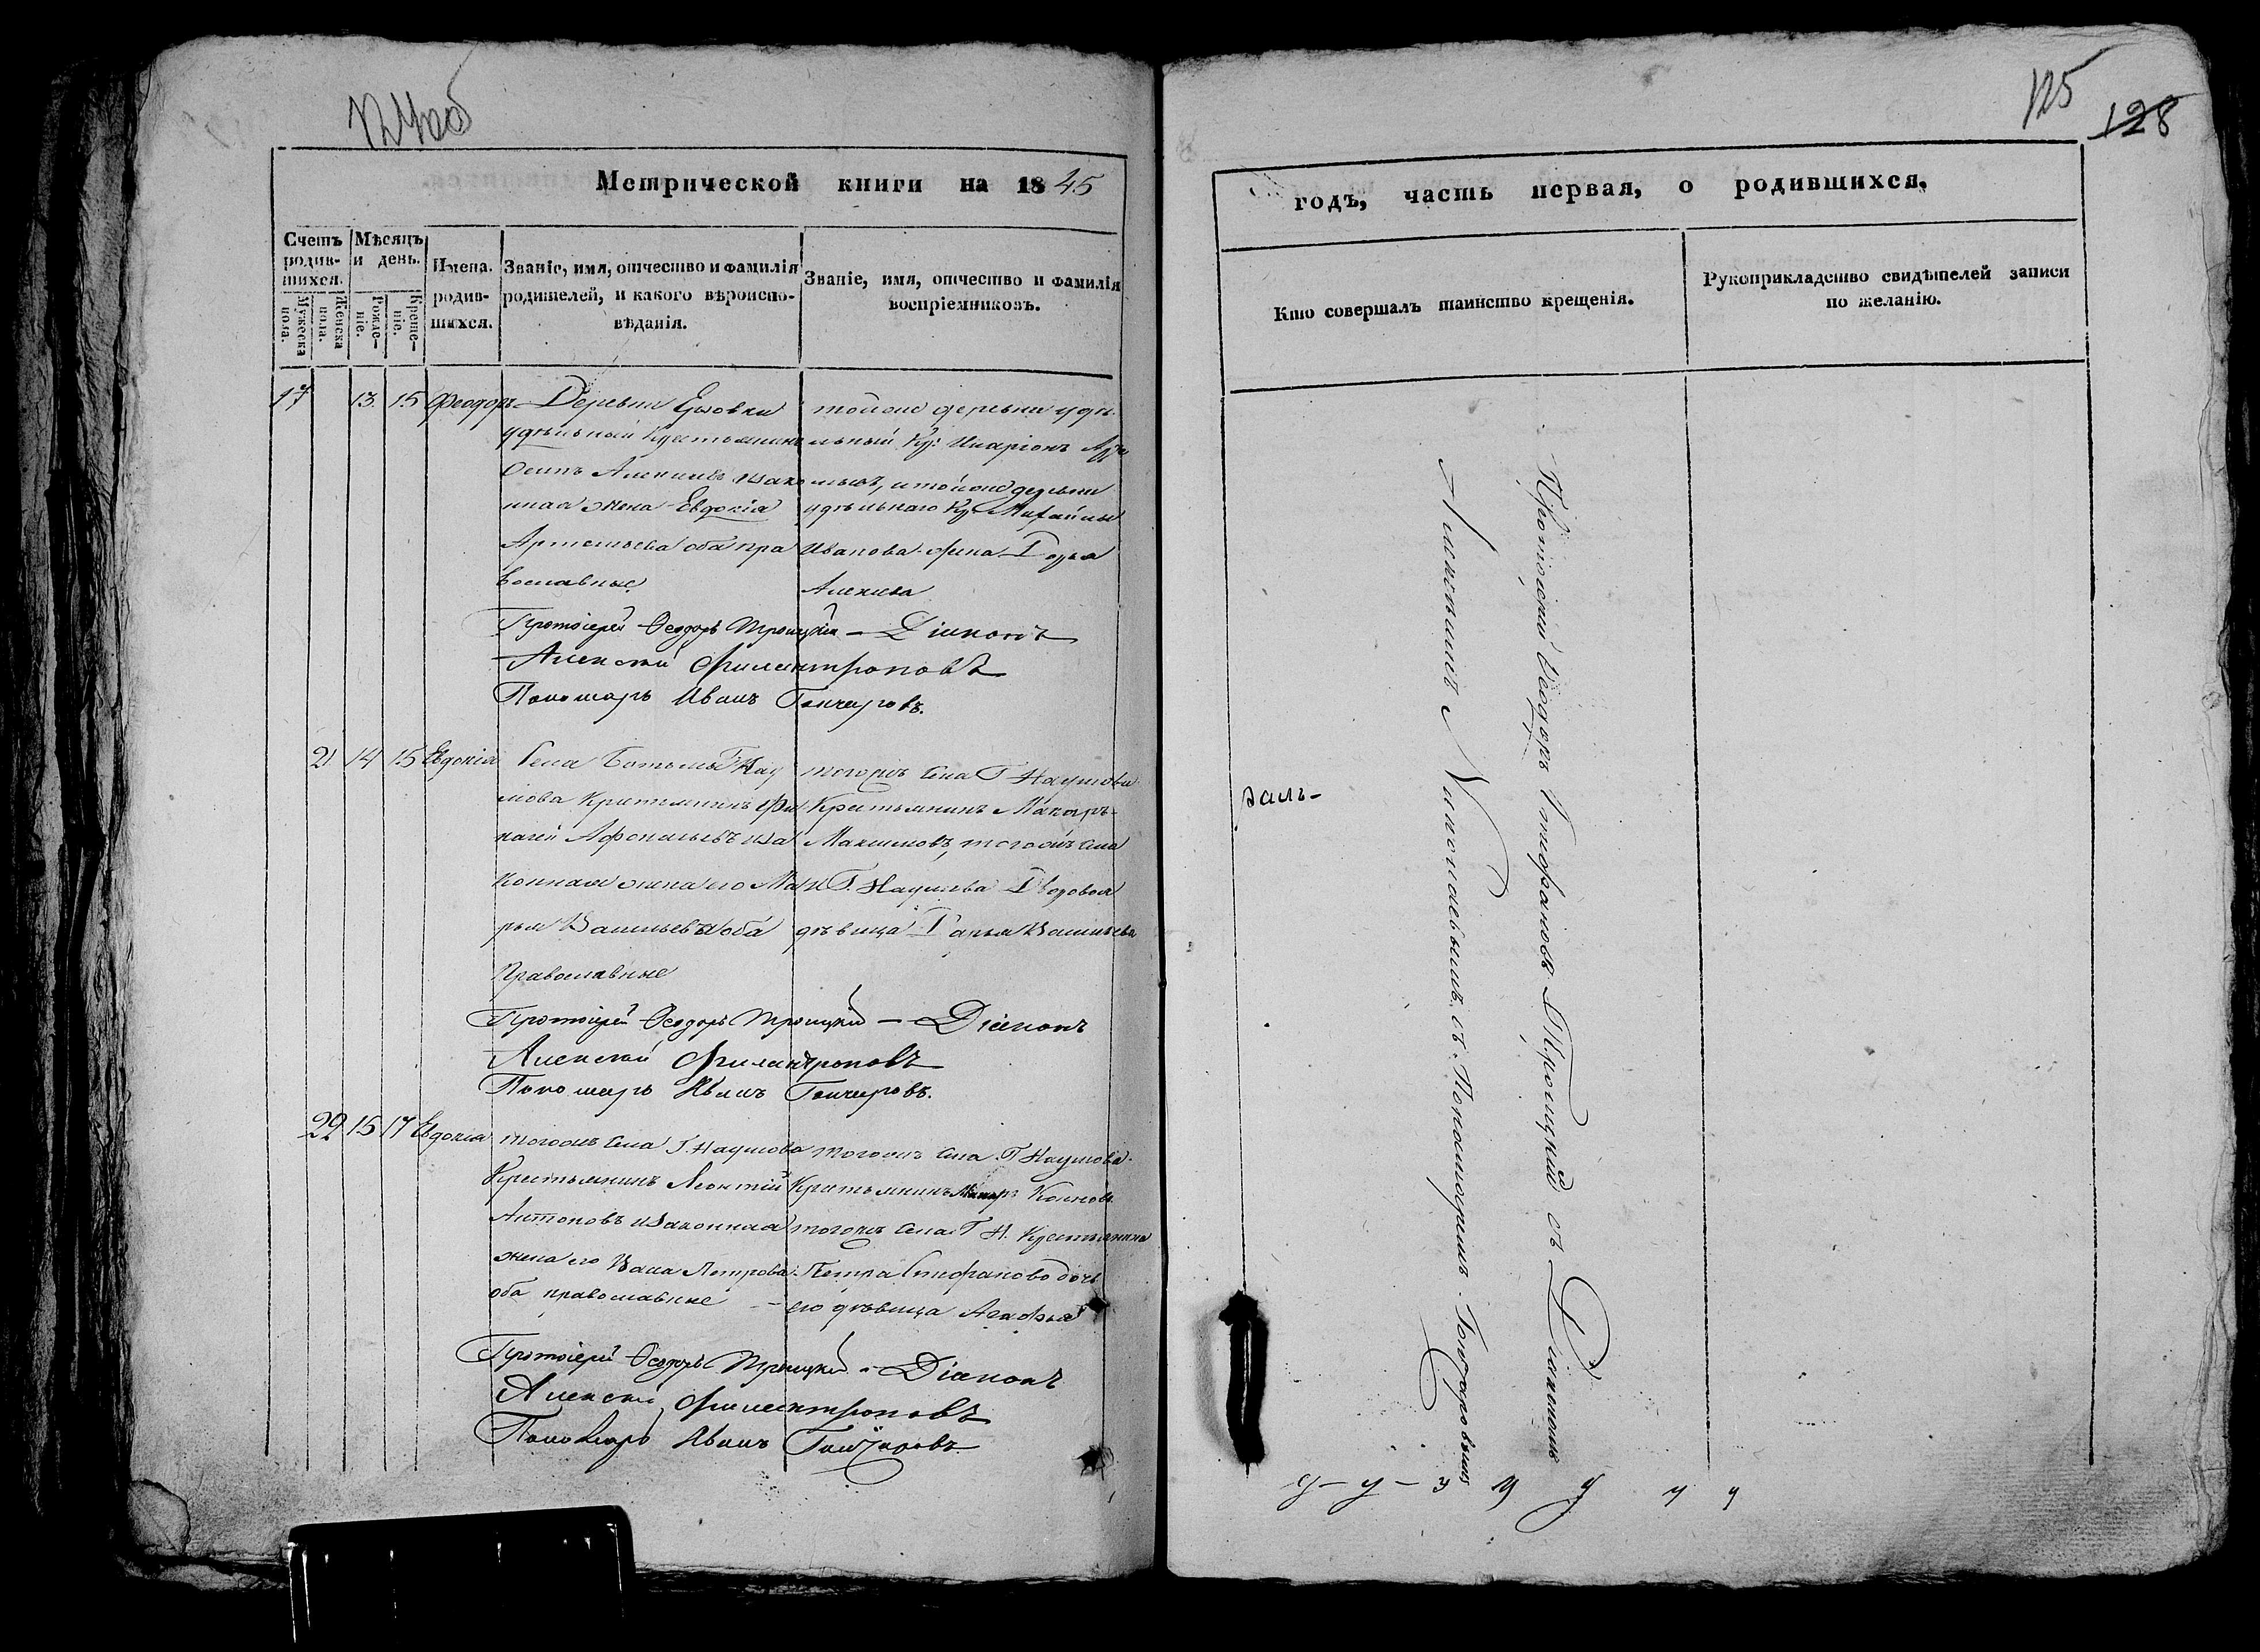 124об
Метрической книги на 1845
Счетъ родив-шихся.
Мѣсяцъ и день.
Имена родив-шихся.
Званіе, имя, отчество и фамилія
родителей, и какого вѣроиспо-
вѣданія.
Званіе, имя, отчество и фамилія
воспріемниковъ.
Мужеска пола.
Женска пола.
Рожде-ніе.
Креще-ніе.
17 13 15 Феодоръ
Деревни Ерзовки
удѣльный Крестьянинъ
Осипъ Алексѣевъ изако
нная жена Евдокія
Артемьева оба пра
вославные
тойже деревни удѣ
льный Кр: Иларіонъ
и тойже деревни
удѣльнаго Кр: Михайлы
Иванова жена
Алексѣева
Протоіерей Ѳеодоръ Троицкій – Діаконъ
Алексѣй Филантроповъ
Пономарь Иванъ Гончаровъ.
21 14 15 Евдокія
Села Ботьмы Г. Нау
мова Крестьянинъ Фи
Афонасьевъ иза
конная жена его Ма
рья Васильева оба
Православные
тогожъ села Г Наумова
Крестьянинъ Макаръ
Максимовъ, тогожъ села
Г. Наумова Дворовая
дѣвица Дарья Васильева
Протоіерей Ѳеодоръ Троицкій – Діаконъ
Алексѣй Филантроповъ
Пономарь Иванъ Гончаровъ.
22 15 17 Евдокія
тогожъ села Г. Наумова
Крестьянинъ Леонтій
Антоновъ изаконная
жена его Васа Петрова
оба православные
тогожъ села Г Наумова
Крестьянинъ Макаръ
тогожъ села Г Н. Крестьянина
Петра Стефанова дочь
его дѣвица Агафья
Протоіерей Ѳеодоръ Троицкій – Діаконъ
Алексѣй Филантроповъ
Пономарь Иванъ Гончаровъ
125
128
годъ, часть первая, о родившихся.
Кто совершалъ таинство крещенія.
Рукоприкладство свидѣтелей записи
по желанію.
Протоіерей Ѳеодоръ Стефановъ Троицкій съ Діакономъ
Алексѣемъ Николаевымъ, съ Пономаремъ Гончаровымъ